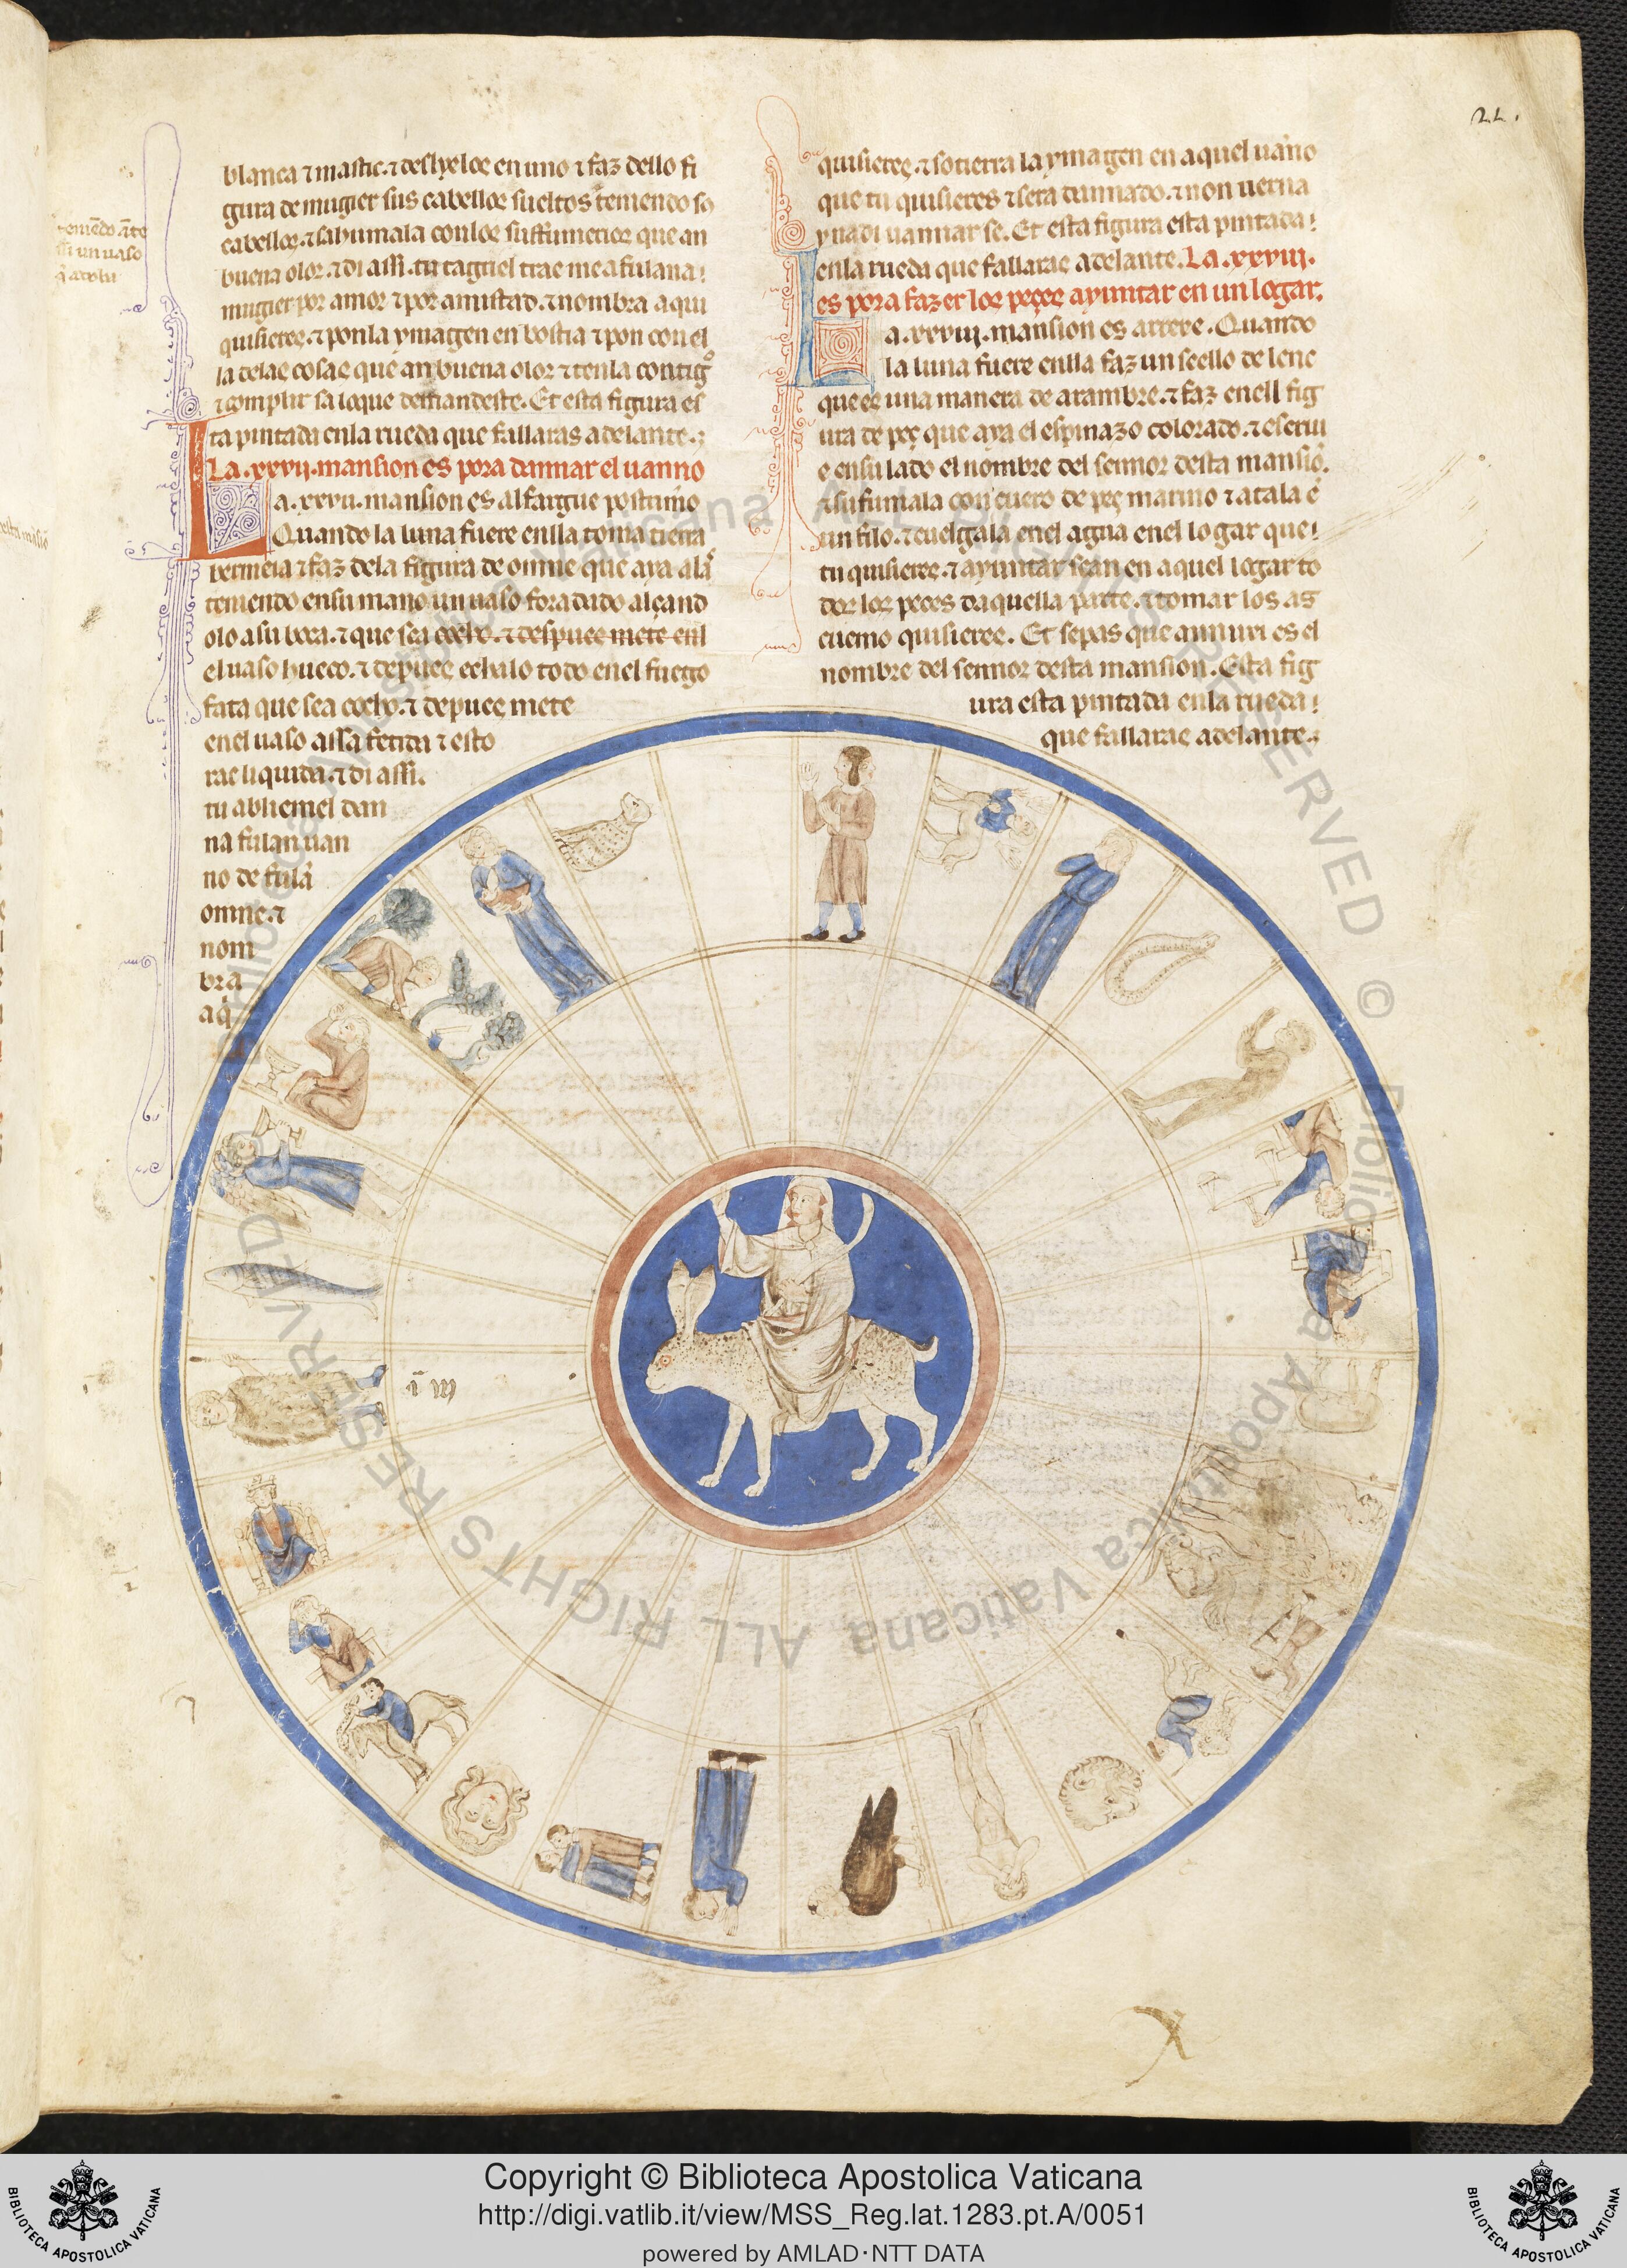 22.
blanca ⁊ mastic. ⁊ desyeloς en uno ⁊ faz dello fi
gura de mugier sus cabelloς sueltos teniendo so
cabelloς. ⁊ sahumala con loς suffumerios que an
buena olor. ⁊ di assi. tu tagriel trae me a fulana
mugier por amor ⁊ por amistad. ⁊ nombra a qui
quisiereς. ⁊ pon la ymagen en bostia ⁊ pon con el
la delaς cosaς que an buena olor ⁊ tenla contigo
⁊ complir sa loque demandeste. Et esta figura es
ta pintada enla rueda que fallaras adelante.
La .xxvii. mansion es pora dannar el uanno
La .xxvii. mansion es alfargue postrimo
Quando la luna fuere enlla toma tierra
bermeia ⁊ faz dela figura de omne que aya alaς
teniendo ensu mano un uaso foradado alçand
olo a su boca. ⁊ que sea cocho. ⁊ despueς mete enl
el uaso hueco. ⁊ depueς echalo todo enel fuego
fata que sea cocho. ⁊ depueς mete
enel uaso assa fetida ⁊ esto
rac liquida. ⁊ di assi.
tu abliemel dan
na fulan uan
no de fulā
omne. ⁊
nom
bra
a q̄
quisiereς. ⁊ sotierra la ymagen en aquel uāno
que tu quisieres ⁊ sera dannado. ⁊ non uerna
y nadi uannar se. Et esta figura esta pintada
enla rueda que fallaraς adelante. La .xxviii.
es pora fazer loς peçeς ayuntar en un logar.
La .xxviii. mansion es arrexe. Quando
la luna fuere enlla faz un seello de lene
que eς una manera de arambre. ⁊ faz enell fig
ura de peç que aya el espinazo colorado. ⁊ escriu
e ensu lado el nombre del sennor desta mansiō.
⁊ sufumala con cuero de peç marino ⁊ atala ē
un filo. ⁊ cuelgala enel agua enel logar que
tu quisiereς. ⁊ ayuntar sean en aquel logar to
dos los peces daquella parte. ⁊ tomar los as
cuemo quisiereς. Et sepas que annuri es el
nombre del sennor desta mansion. Esta fig
ura esta pintada enla rueda
que fallaraς adelante.
ī iij
Copyright © Biblioteca Apostolica Vaticana
http://digi.vatlib.it/view/MSS_Reg.lat.1283.pt.A/0051
powered by AMLAD·NTT DATA
BIBLIOTECA APOSTOLICA VATICANA
BIBLIOTECA APOSTOLICA VATICANA
Biblioteca Apostolica Vaticana ALL RIGHTS RESERVED © Biblioteca Apostolica Vaticana ALL RIGHTS RESERVED ©